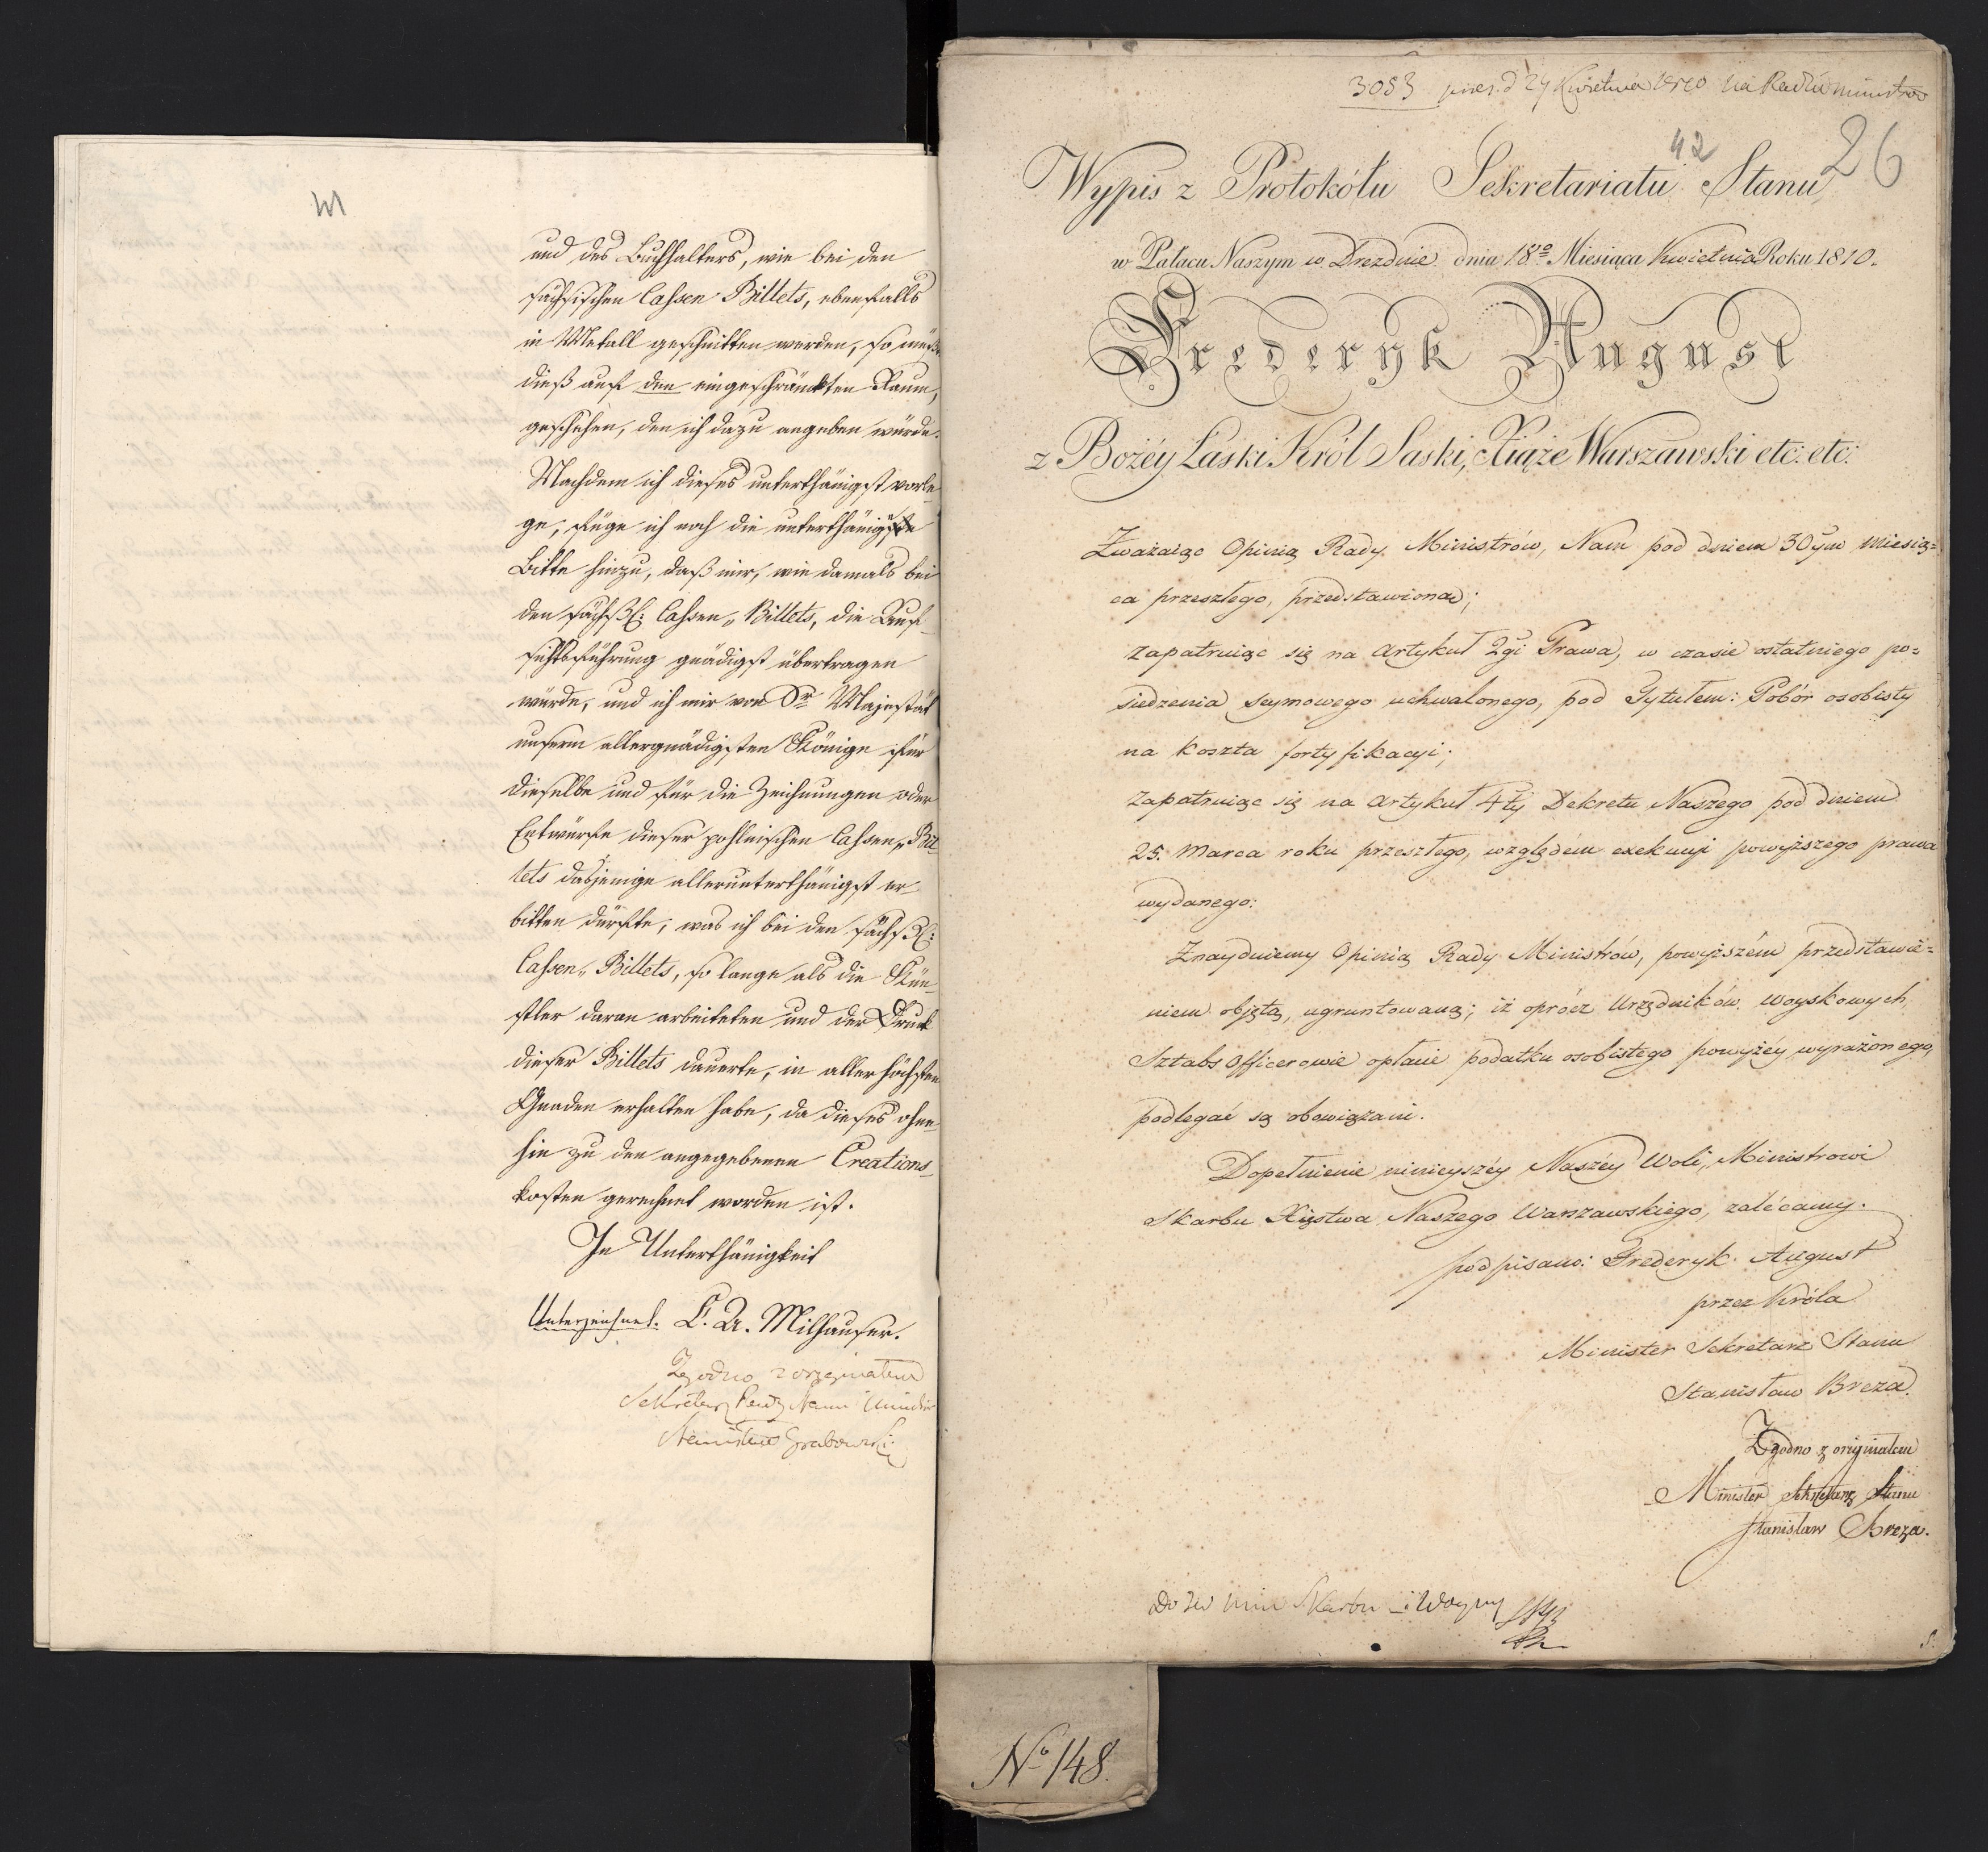 und des Buchhalters, wie bei den
sächsischen Cassen Billets, ebenfalls
in Metall geschnitten werden, so müßte
dieß auf den eingeschränckten Raum,
geschehen, den ich dazu angeben würde.
Nachdem ich dieses unterthänigst vorle-
ge, füge ich noch die unterthänigste
Bitte hinzu, daß mir, wie damals bei
den sächß: Cassen„Billets, die Auf-
sichtsführung gnädigst übertragen
würde, und ich mir von Sr Majestät
unserm allergnädigsten Könige für
dieselbe und für die Zeichnungen oder
Entwürfe dieser pohlnischen Cassen„Bil-
lets dasjenige allerunterthänigst er-
bitten dürfte, was ich bei den sächß:
Cassen„Billets, so lange als die Kün-
stler daran arbeiteten und der Druck
dieser Billets dauerte, in allerhöchsten
Gnaden erhalten habe, da dieses ohne-
hin zu den angegebenen Creations-
kosten gerechnet worden ist.
In Unterthänigkeit
Unterzeichnet. C. A. Milhauser.
Zgodno z oryginałem
Sekretarz Rady Stanu i Ministrów
Stanisław Grabowski
3083 pres. d 27 Kwietnia 1810 na Radzie ministrów
42 26
Wypis z Protokółu Sekretariatu Stanu
w Pałacu Naszym w Dreźdnie dnia 18º Miesiąca Kwietnia Roku 1810.
Frederyk August
z Bożéy Łaski Król Saski, Xiąże Warszawski etc: etc:
Zważaiąc Opinią Rady Ministrów, Nam pod dniem 30ym Miesią=
ca przeszłego, przedstawioną;
zapatruiąc się na Artykuł 2gi Prawa, w czasie ostatniego po=
siedzenia seymowego uchwalonego, pod Tytułem: Pobór osobisty
na koszta fortyfikacyi;
Zapatruiąc się na Artykuł 4ty Dekretu Naszego pod dniem
25. Marca roku przeszłego, względem exekucyi powyższego prawa
wydanego:
Znayduiemy Opinią Rady Ministrów, powyższém przedstawie=
niem objętą, ugruntowaną; iż oprócz Urzędników woyskowych,
Sztabs Officerowie opłacie podatku osobistego powyżéy wyrażonego,
podlegać są obowiązani.
Dopełnienie ninieyszéy Naszéy Woli, Ministrowi
Skarbu Xięstwa Naszego Warszawskiego, zalécamy.
podpisano: Frederyk August
przez Króla
Minister Sekretarz Stanu
Stanisław Breza.
Zgodno z oryginałem
Minister Sekretarz Stanu
Stanisław Breza.
Do JW Min Skarbu i Woyny
Nº 148.